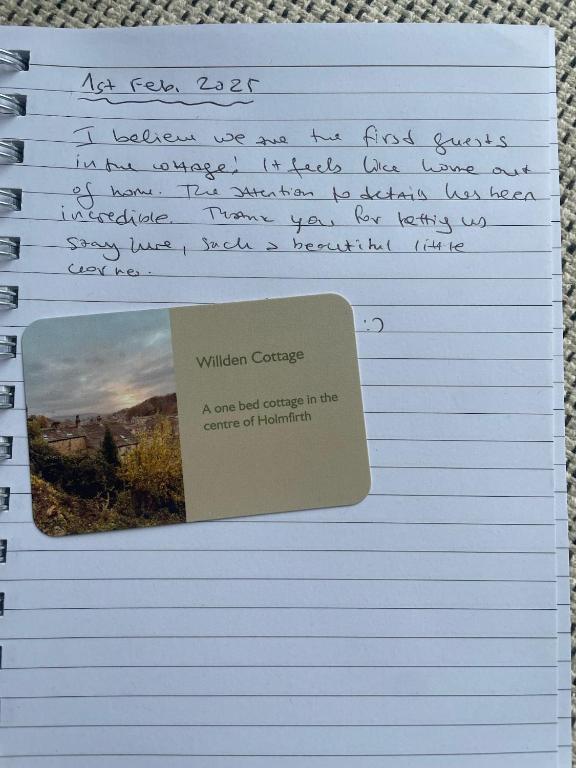 1st Feb. 2025
I believe we are the first guests
in the cottage! It feels like home out
of home. The attention to details has been
incredible. Thank you for letting us
stay here, such a beautiful little
corner.
:)
Willden Cottage
A one bed cottage in the
centre of Holmfirth